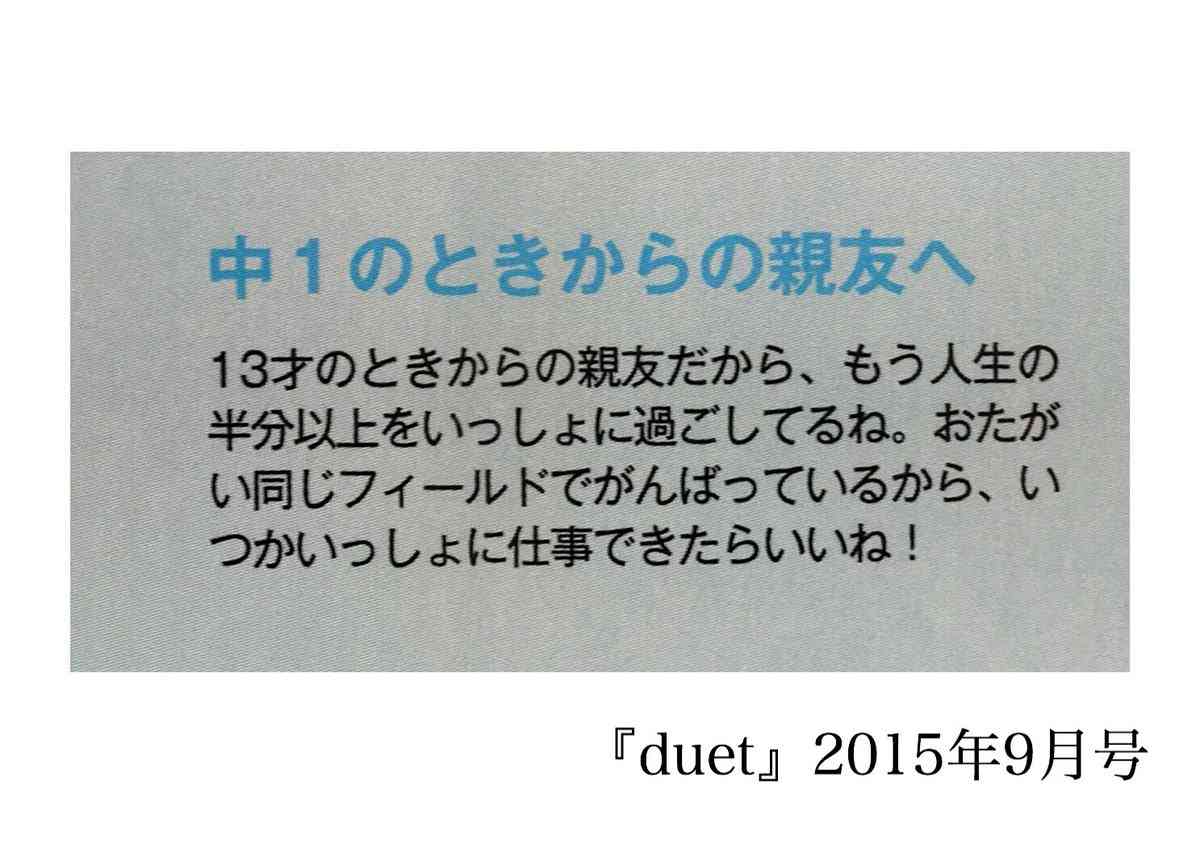 中1のときからの親友へ
13才のときからの親友だから、もう人生の
半分以上をいっしょに過ごしてるね。おたが
い同じフィールドでがんばっているから、い
つかいっしょに仕事できたらいいね！
『duet』2015年9月号